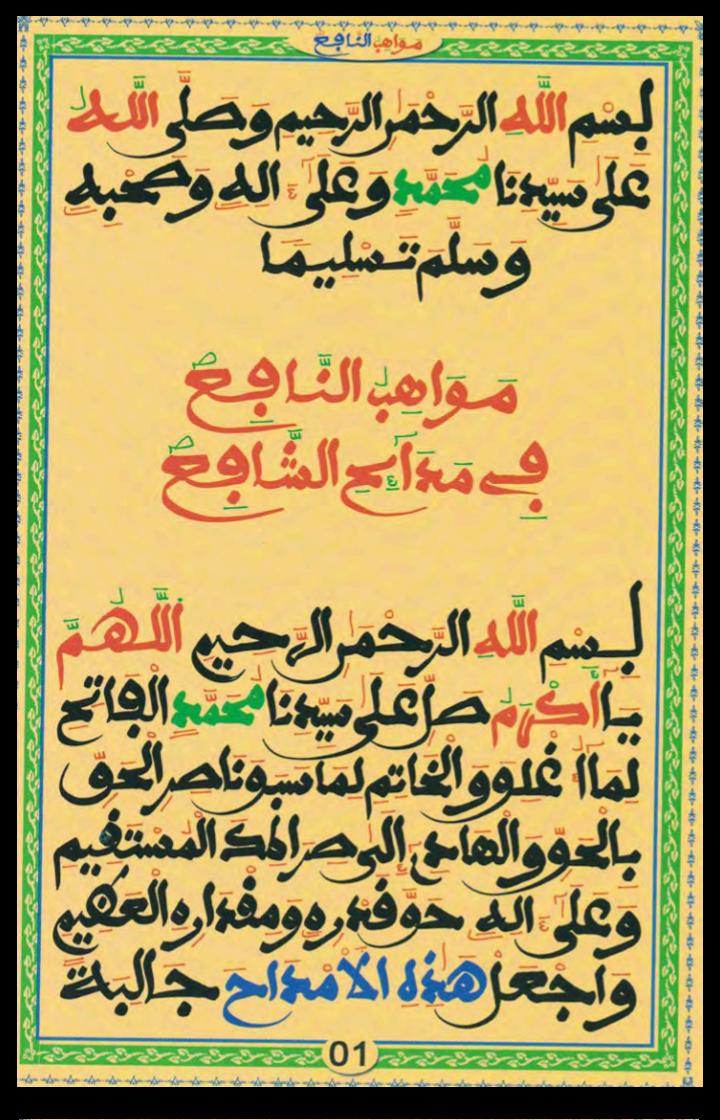 مواهب النافع
بسم الله الرحمن الرحيم وصلى الله
على سيدنا محمد وعلى ءاله وصحبه
وسلم تسليما
مَوَاهِبُ النَّافِعْ
فِے مَدَآئِحِ الشَّافِعْ
بسم الله الرحمن الرحيم اللهم
يا أكرم صل على سيدنا محمد الفاتح
لما أغلق والخاتم لما سبق ناصر الحق
بالحق والهادي إلى صراطك المستقيم
وعلى ءاله حق قدره ومقداره العظيم
واجعل هذه الأمداح جالبة
01